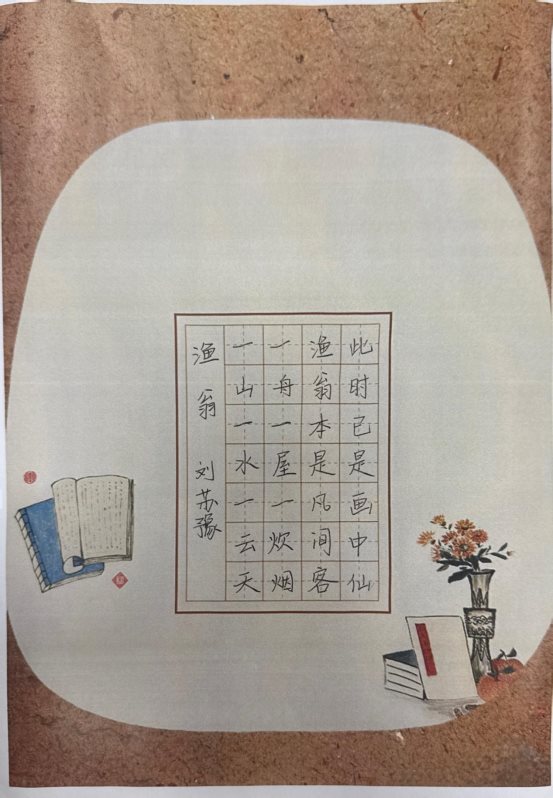 渔翁 刘苏豫
一山一水一云天
一舟一屋一炊烟
渔翁本是凡间客
此时已是画中仙